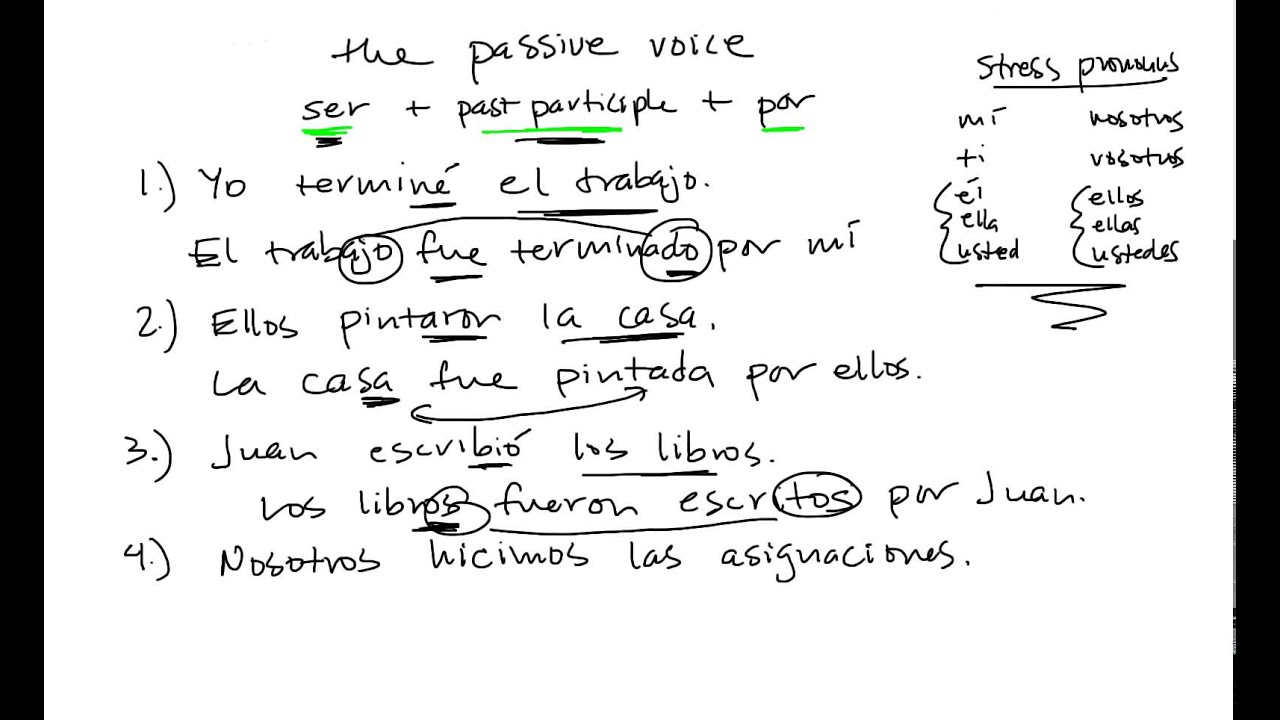 the passive voice
ser + past participle + por
1.) Yo terminé el trabajo.
El trabajo fue terminado por mí
2.) Ellos pintaron la casa.
La casa fue pintada por ellos.
3.) Juan escribió los libros.
Los libros fueron escritos por Juan.
4.) Nosotros hicimos las asignaciones.
Stress pronouns
mí nosotros
ti vosotros
él ellos
ella ellas
usted ustedes